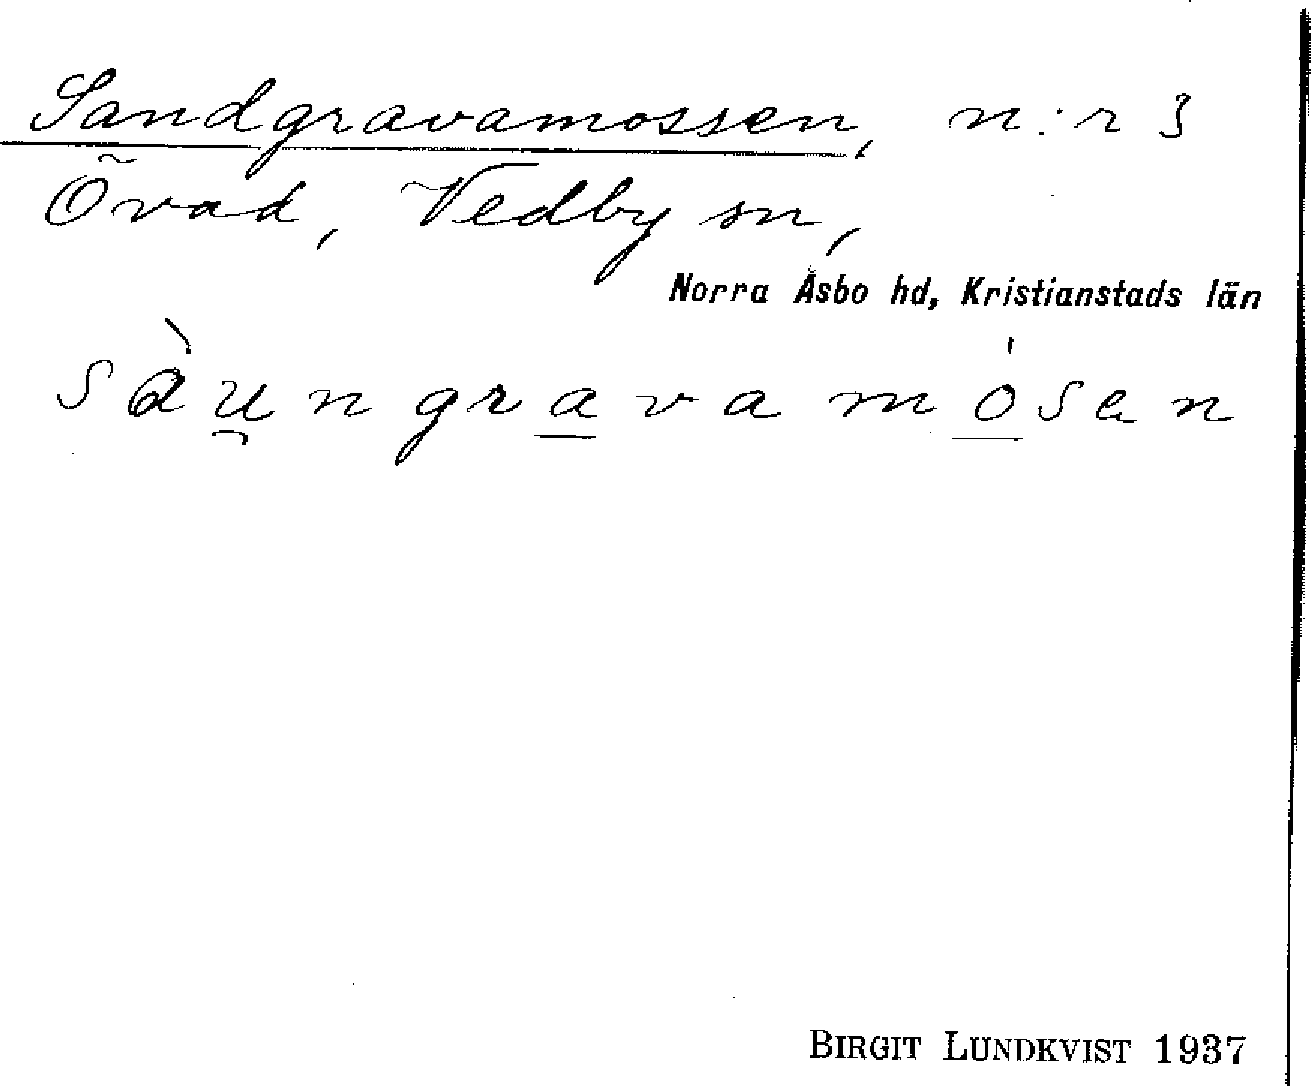 Sandgravamossen, n:r 3
Övad, Vedby sn,
Norra Åsbo hd, Kristianstads län
sàu̯n gra̲va mó̲sen
BIRGIT LUNDKVIST 1937